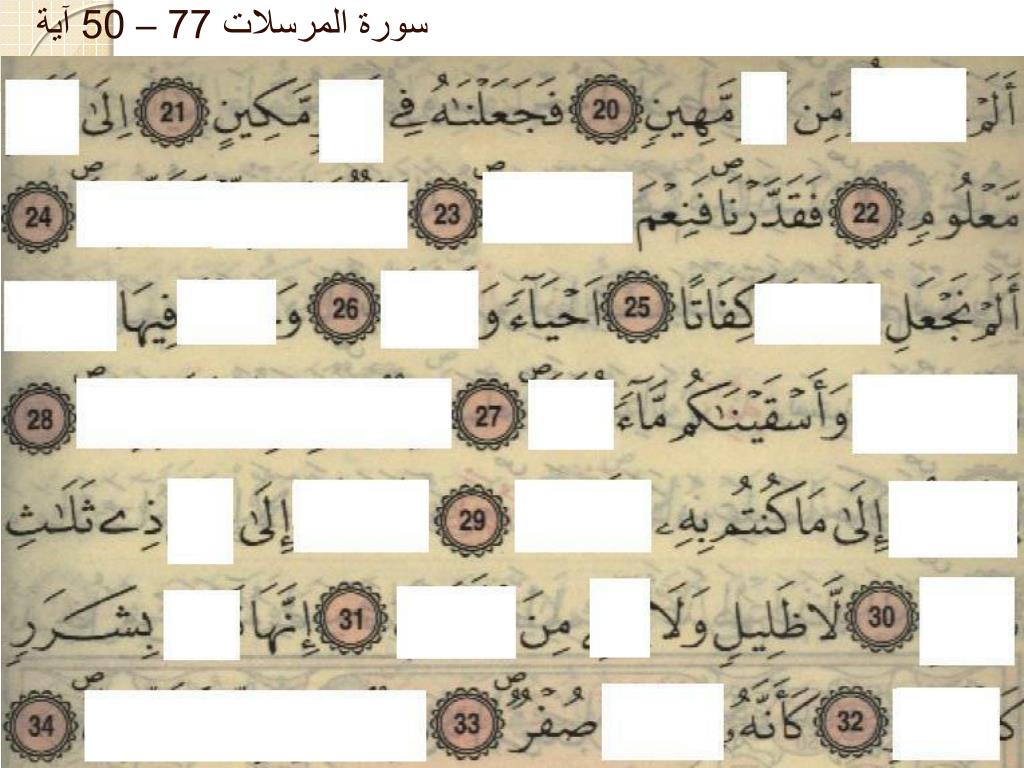 سورة المرسلات 77 – 50 آية
أَلَمْ مِّن مَّهِينٍ 20 فَجَعَلْنَٰهُ فِے مَّكِينٍ 21 إِلَىٰ
مَّعْلُومٍ 22 فَقَدَّرْنَا فَنِعْمَ 23 24
أَلَمْ نَجْعَلِ كِفَاتًا 25 اَحْيَآءً وَ 26 وَ فِيهَا
وَأَسْقَيْنَٰكُم مَّآءً 27 28
إِلَىٰ مَا كُنتُم بِهِۦ 29 إِلَىٰ ذِے ثَلَٰثِ
30 لَّا ظَلِيلٍ وَلَا مِنَ 31 إِنَّهَا بِشَرَرٍ
32 كَأَنَّهُۥ صُفْرٌ 33 34